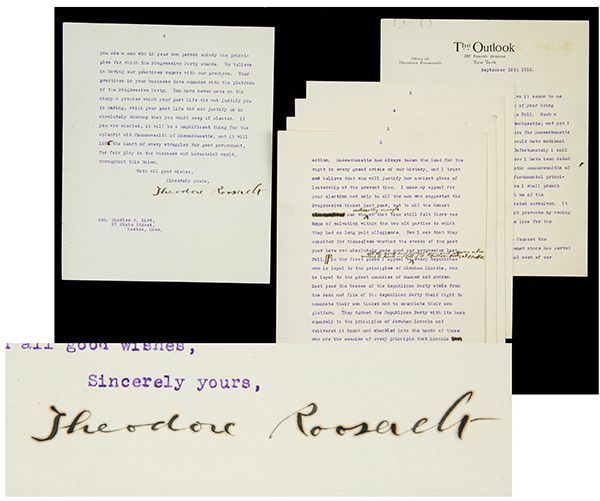 6
you are a man who in your own person embody the princi-
ples for which the Progressive Party stands. We believe
in having our practices square with our promises. Your
practices in your business have squared with the platform
of the Progressive Party. You have never made on the
stump a promise which your past life did not justify you
in making, which your past life did not justify us in
absolutely knowing that you would keep if elected. If
you are elected, it will be a magnificent thing for the
splendid old Commonwealth of Massachusetts, and it will
lift the heart of every struggler for good government,
for fair play in the business and industrial world,
throughout this Union.
With all good wishes,
Sincerely yours,
Theodore Roosevelt
Hon. Charles S. Bird,
27 State Street,
Boston, Mass.
The Outlook
287 Fourth Avenue
New York
Office of
Theodore Roosevelt
September 15th 1913.
it seems to me
of your being
Fall. Such a
Massachusetts; yet I
for Massachusetts
would have national
Unfortunately I call
I have been asked
commonwealths of
fundamental princi-
I shall preach
ourselves. It
prevents my coming
lies for the
founded the
since has served
need most of our
5
4
3
2
action. Massachusetts has always taken the lead for the
right in every great crisis of our history, and I trust
and believe that she will justify her ancient place of
leadership at the present time. I make my appeal for
your election not only to all the men who supported the
Progressive ticket last year, but to all the honest
men who at that time still felt there was
hope of salvation within the two old parties to which
they had so long paid allegiance. Now I ask that they
consider for themselves whether the events of the past
year have not absolutely made good our prophecies last
Fall. In the first place I appeal to every Republican
who is loyal to the principles of Abraham Lincoln, who
is loyal to the great memories of Sumner and Andrew.
Last year the bosses of the Republican Party stole from
the rank and file of the Republican Party their right to
nominate their own ticket and to enunciate their own
platform. They turned the Republican Party with its back
squarely to the principles of Abraham Lincoln and
delivered it bound and shackled into the hands of those
who are the enemies of every principle that Lincoln
all good wishes,
Sincerely yours,
Theodore Roosevelt